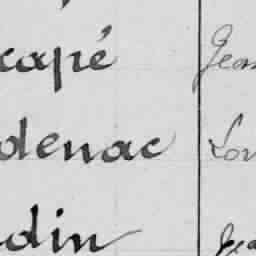 capé Jean
denac Lou
din Jea